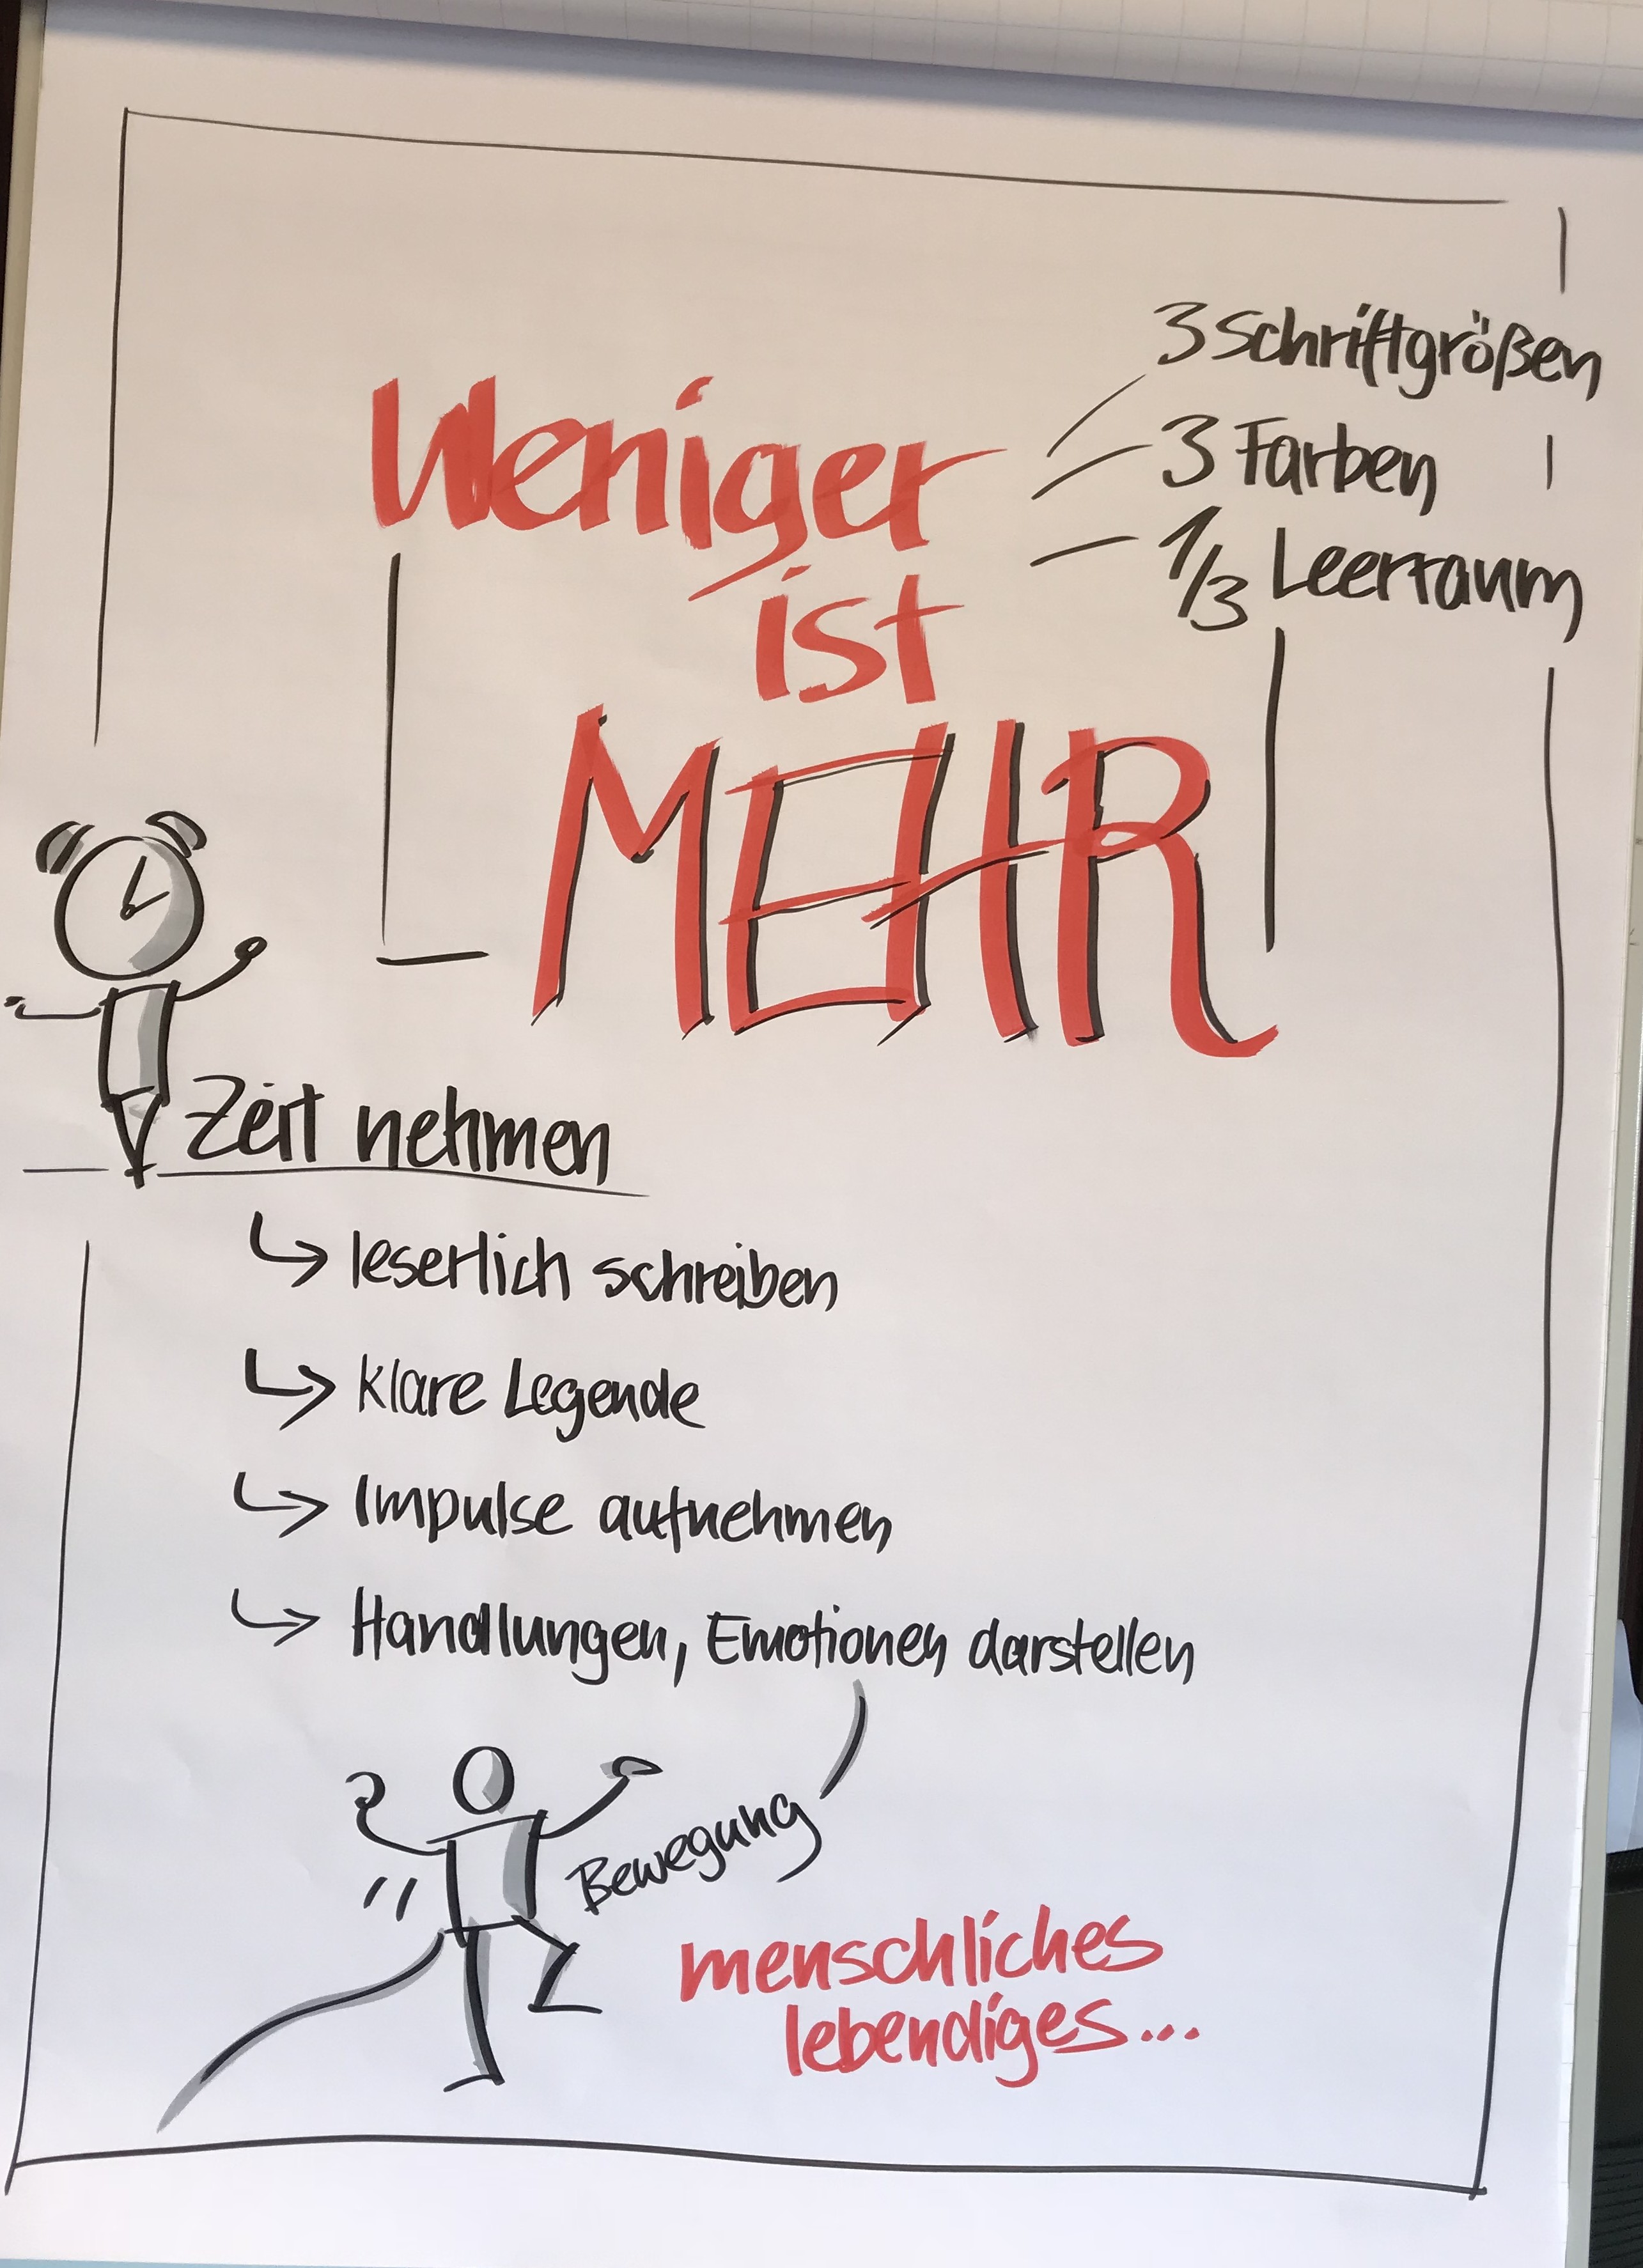 Weniger
ist
MEHR
3 Schriftgrößen
3 Farben
1/3 Leerraum
Zeit nehmen
leserlich schreiben
klare Legende
Impulse aufnehmen
Handlungen, Emotionen darstellen
Bewegung
menschliches
lebendiges...